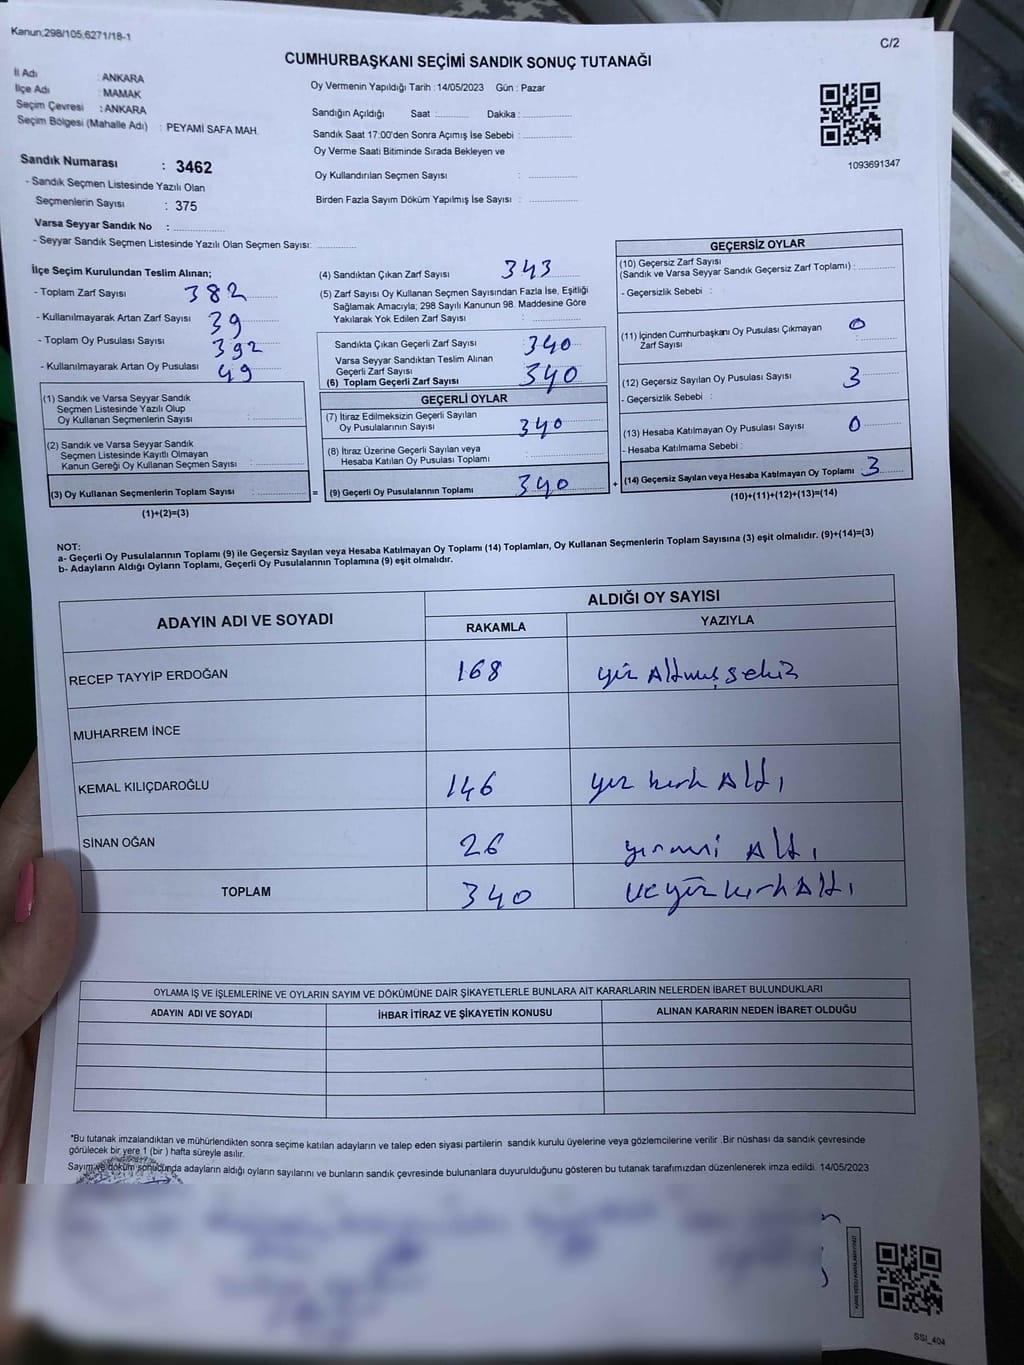 Kanun;298/105,6271/18-1
C/2
CUMHURBAŞKANI SEÇİMİ SANDIK SONUÇ TUTANAĞI
İl Adı : ANKARA
İlçe Adı : MAMAK
Seçim Çevresi : ANKARA
Seçim Bölgesi (Mahalle Adı) : PEYAMİ SAFA MAH.
Sandık Numarası : 3462
- Sandık Seçmen Listesinde Yazılı Olan
Seçmenlerin Sayısı : 375
Varsa Seyyar Sandık No :
- Seyyar Sandık Seçmen Listesinde Yazılı Olan Seçmen Sayısı:
Oy Vermenin Yapıldığı Tarih : 14/05/2023 Gün : Pazar
Sandığın Açıldığı Saat : Dakika :
Sandık Saat 17:00'den Sonra Açımış İse Sebebi :
Oy Verme Saati Bitiminde Sırada Bekleyen ve
Oy Kullandırılan Seçmen Sayısı :
Birden Fazla Sayım Döküm Yapılmış İse Sayısı :
1093691347
İlçe Seçim Kurulundan Teslim Alınan;
- Toplam Zarf Sayısı 382
- Kullanılmayarak Artan Zarf Sayısı 39
- Toplam Oy Pusulası Sayısı 392
- Kullanılmayarak Artan Oy Pusulası 49
(1) Sandık ve Varsa Seyyar Sandık
Seçmen Listesinde Yazılı Olup
Oy Kullanan Seçmenlerin Sayısı :
(2) Sandık ve Varsa Seyyar Sandık
Seçmen Listesinde Kayıtlı Olmayan
Kanun Gereği Oy Kullanan Seçmen Sayısı :
(3) Oy Kullanan Seçmenlerin Toplam Sayısı :
(1)+(2)=(3)
(4) Sandıktan Çıkan Zarf Sayısı 343
(5) Zarf Sayısı Oy Kullanan Seçmen Sayısından Fazla İse, Eşitliği
Sağlamak Amacıyla; 298 Sayılı Kanunun 98. Maddesine Göre
Yakılarak Yok Edilen Zarf Sayısı :
Sandıkta Çıkan Geçerli Zarf Sayısı : 340
Varsa Seyyar Sandıktan Teslim Alınan
Geçerli Zarf Sayısı :
(6) Toplam Geçerli Zarf Sayısı 340
GEÇERLİ OYLAR
(7) İtiraz Edilmeksizin Geçerli Sayılan
Oy Pusulalarının Sayısı : 340
(8) İtiraz Üzerine Geçerli Sayılan veya
Hesaba Katılan Oy Pusulası Toplamı :
= (9) Geçerli Oy Pusulalarının Toplamı 340 +
GEÇERSİZ OYLAR
(10) Geçersiz Zarf Sayısı
(Sandık ve Varsa Seyyar Sandık Geçersiz Zarf Toplamı) :
- Geçersizlik Sebebi :
(11) İçinden Cumhurbaşkanı Oy Pusulası Çıkmayan
Zarf Sayısı : 0
(12) Geçersiz Sayılan Oy Pusulası Sayısı 3
- Geçersizlik Sebebi :
(13) Hesaba Katılmayan Oy Pusulası Sayısı 0
- Hesaba Katılmama Sebebi :
(14) Geçersiz Sayılan veya Hesaba Katılmayan Oy Toplamı 3
(10)+(11)+(12)+(13)=(14)
NOT:
a- Geçerli Oy Pusulalarının Toplamı (9) ile Geçersiz Sayılan veya Hesaba Katılmayan Oy Toplamı (14) Toplamları, Oy Kullanan Seçmenlerin Toplam Sayısına (3) eşit olmalıdır. (9)+(14)=(3)
b- Adayların Aldığı Oyların Toplamı, Geçerli Oy Pusulalarının Toplamına (9) eşit olmalıdır.
ADAYIN ADI VE SOYADI ALDIĞI OY SAYISI
RAKAMLA YAZIYLA
RECEP TAYYİP ERDOĞAN 168 yüz Altmış sekiz
MUHARREM İNCE
KEMAL KILIÇDAROĞLU 146 yüz kırk Altı
SİNAN OĞAN 26 yirmi Altı
TOPLAM 340 üçyüz kırk Altı
OYLAMA İŞ VE İŞLEMLERİNE VE OYLARIN SAYIM VE DÖKÜMÜNE DAİR ŞİKAYETLERLE BUNLARA AİT KARARLARIN NELERDEN İBARET BULUNDUKLARI
ADAYIN ADI VE SOYADI İHBAR İTİRAZ VE ŞİKAYETİN KONUSU ALINAN KARARIN NEDEN İBARET OLDUĞU
*Bu tutanak imzalandıktan ve mühürlendikten sonra seçime katılan adayların ve talep eden siyasi partilerin sandık kurulu üyelerine veya gözlemcilerine verilir .Bir nüshası da sandık çevresinde
görülecek bir yere 1 (bir ) hafta süreyle asılır.
Sayım ve döküm sonucunda adayların aldığı oyların sayılarını ve bunların sandık çevresinde bulunanlara duyurulduğunu gösteren bu tutanak tarafımızdan düzenlenerek imza edildi. 14/05/2023
SSI_404